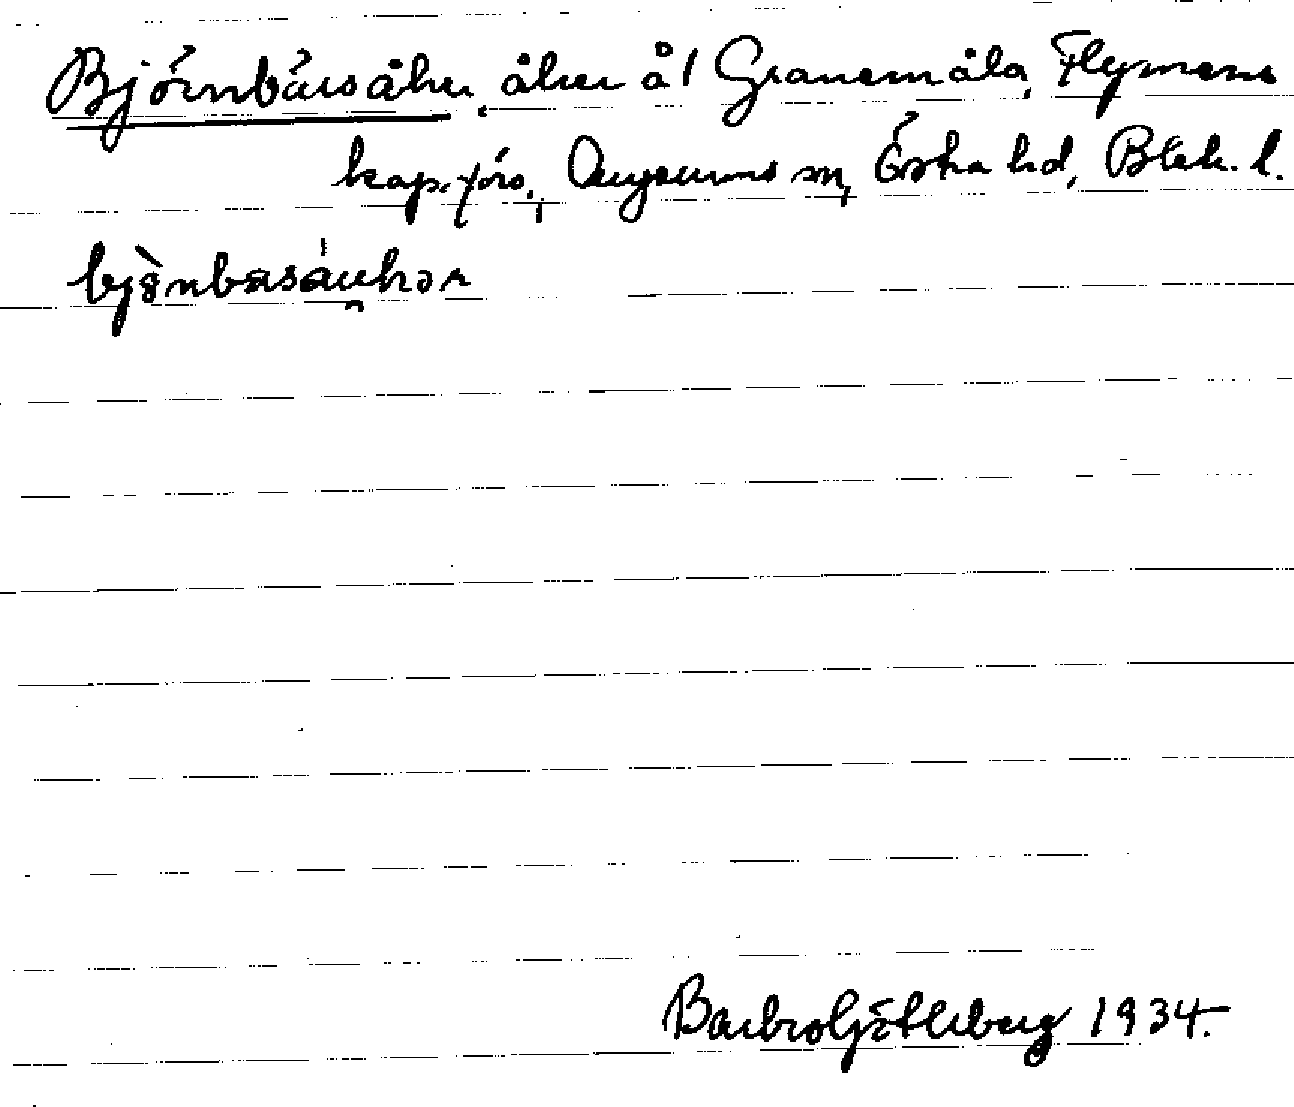 Björnbärsåker, åker å 1 Granemåla, Flymens
kap.förs., Augerums sn, Östra hd, Blek. l.
bjönbasåukər
Barbro Götlberg 1934.